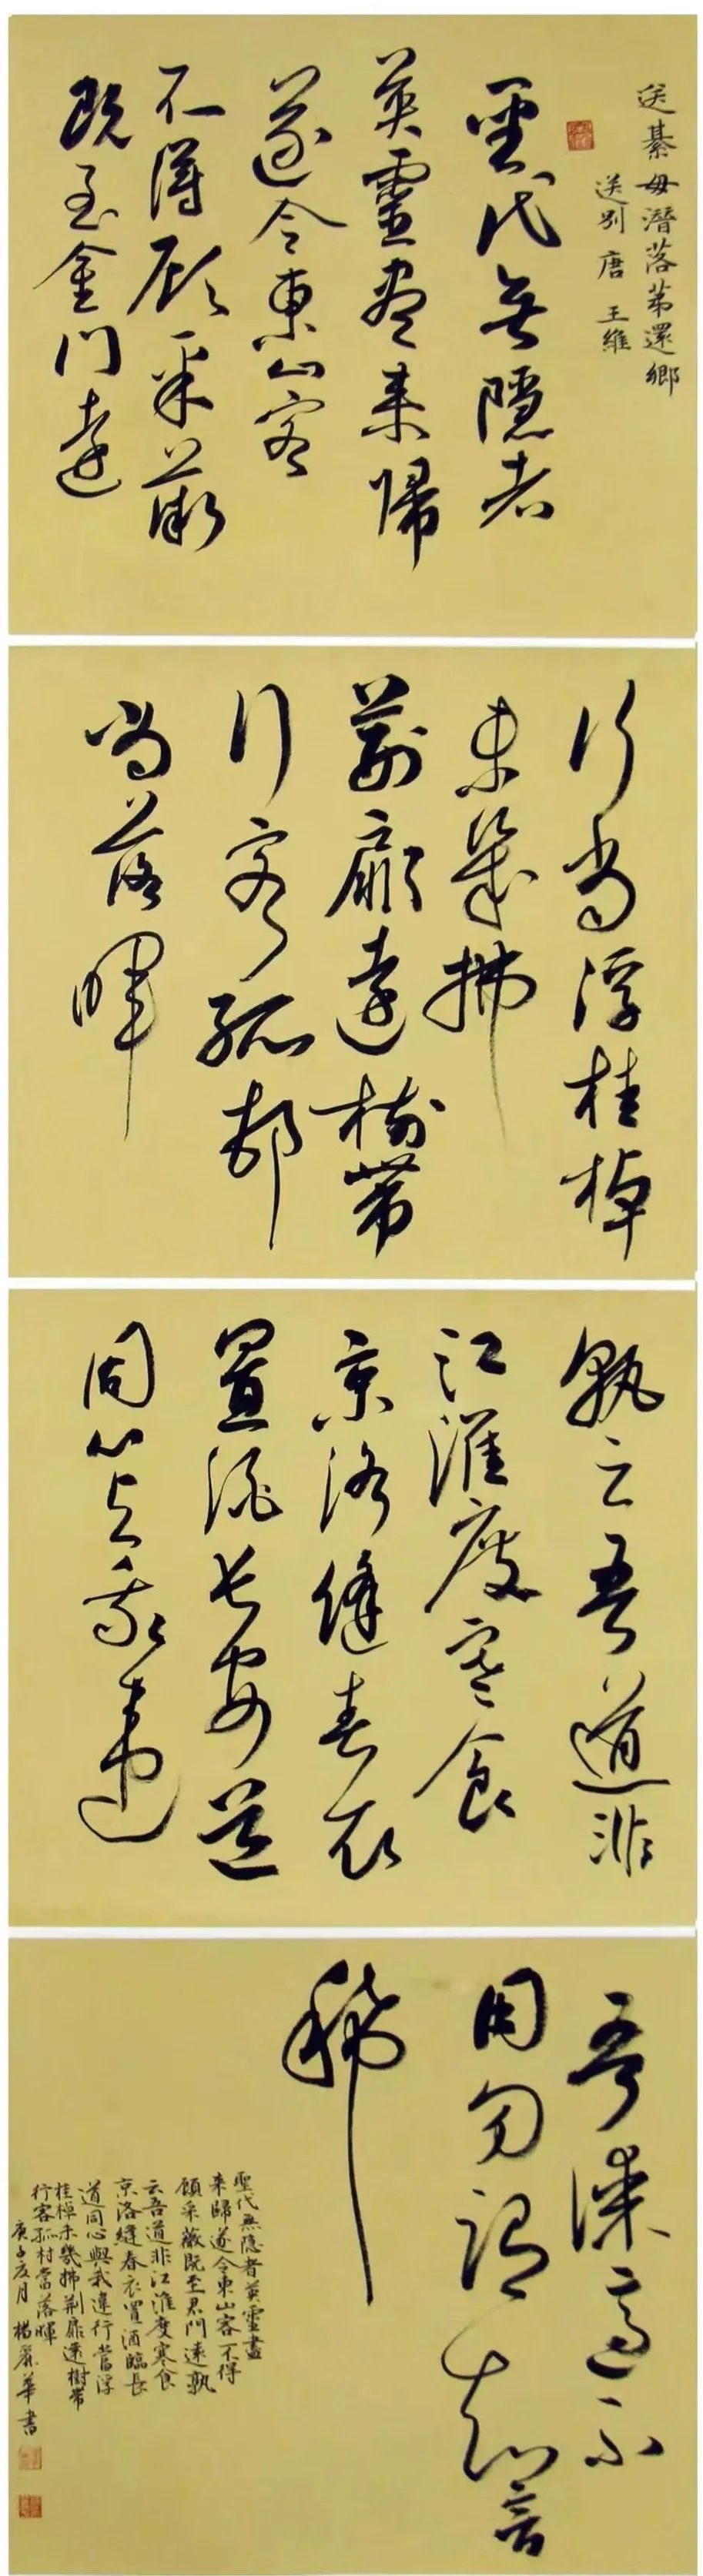 送綦毋潛落第還鄉
送別 唐 王維
聖代無隱者
英靈盡來歸
遂令東山客
不得顧采薇
既至金門遠
行當浮桂棹
未幾拂
荊扉遠樹帶
行客孤邨
當落暉
孰云吾道非
江淮度寒食
京洛縫春衣
置酒長安道
同心與我違
吾謀適不
用勿謂知音
稀
聖代無隱者英靈盡
來歸遂令東山客不得
顧采薇既至君門遠孰
云吾道非江淮度寒食
京洛縫春衣置酒臨長
道同心與我違行當浮
桂棹未幾拂荊扉遠樹帶
行客孤村當落暉
庚子夏月 楊麗華書